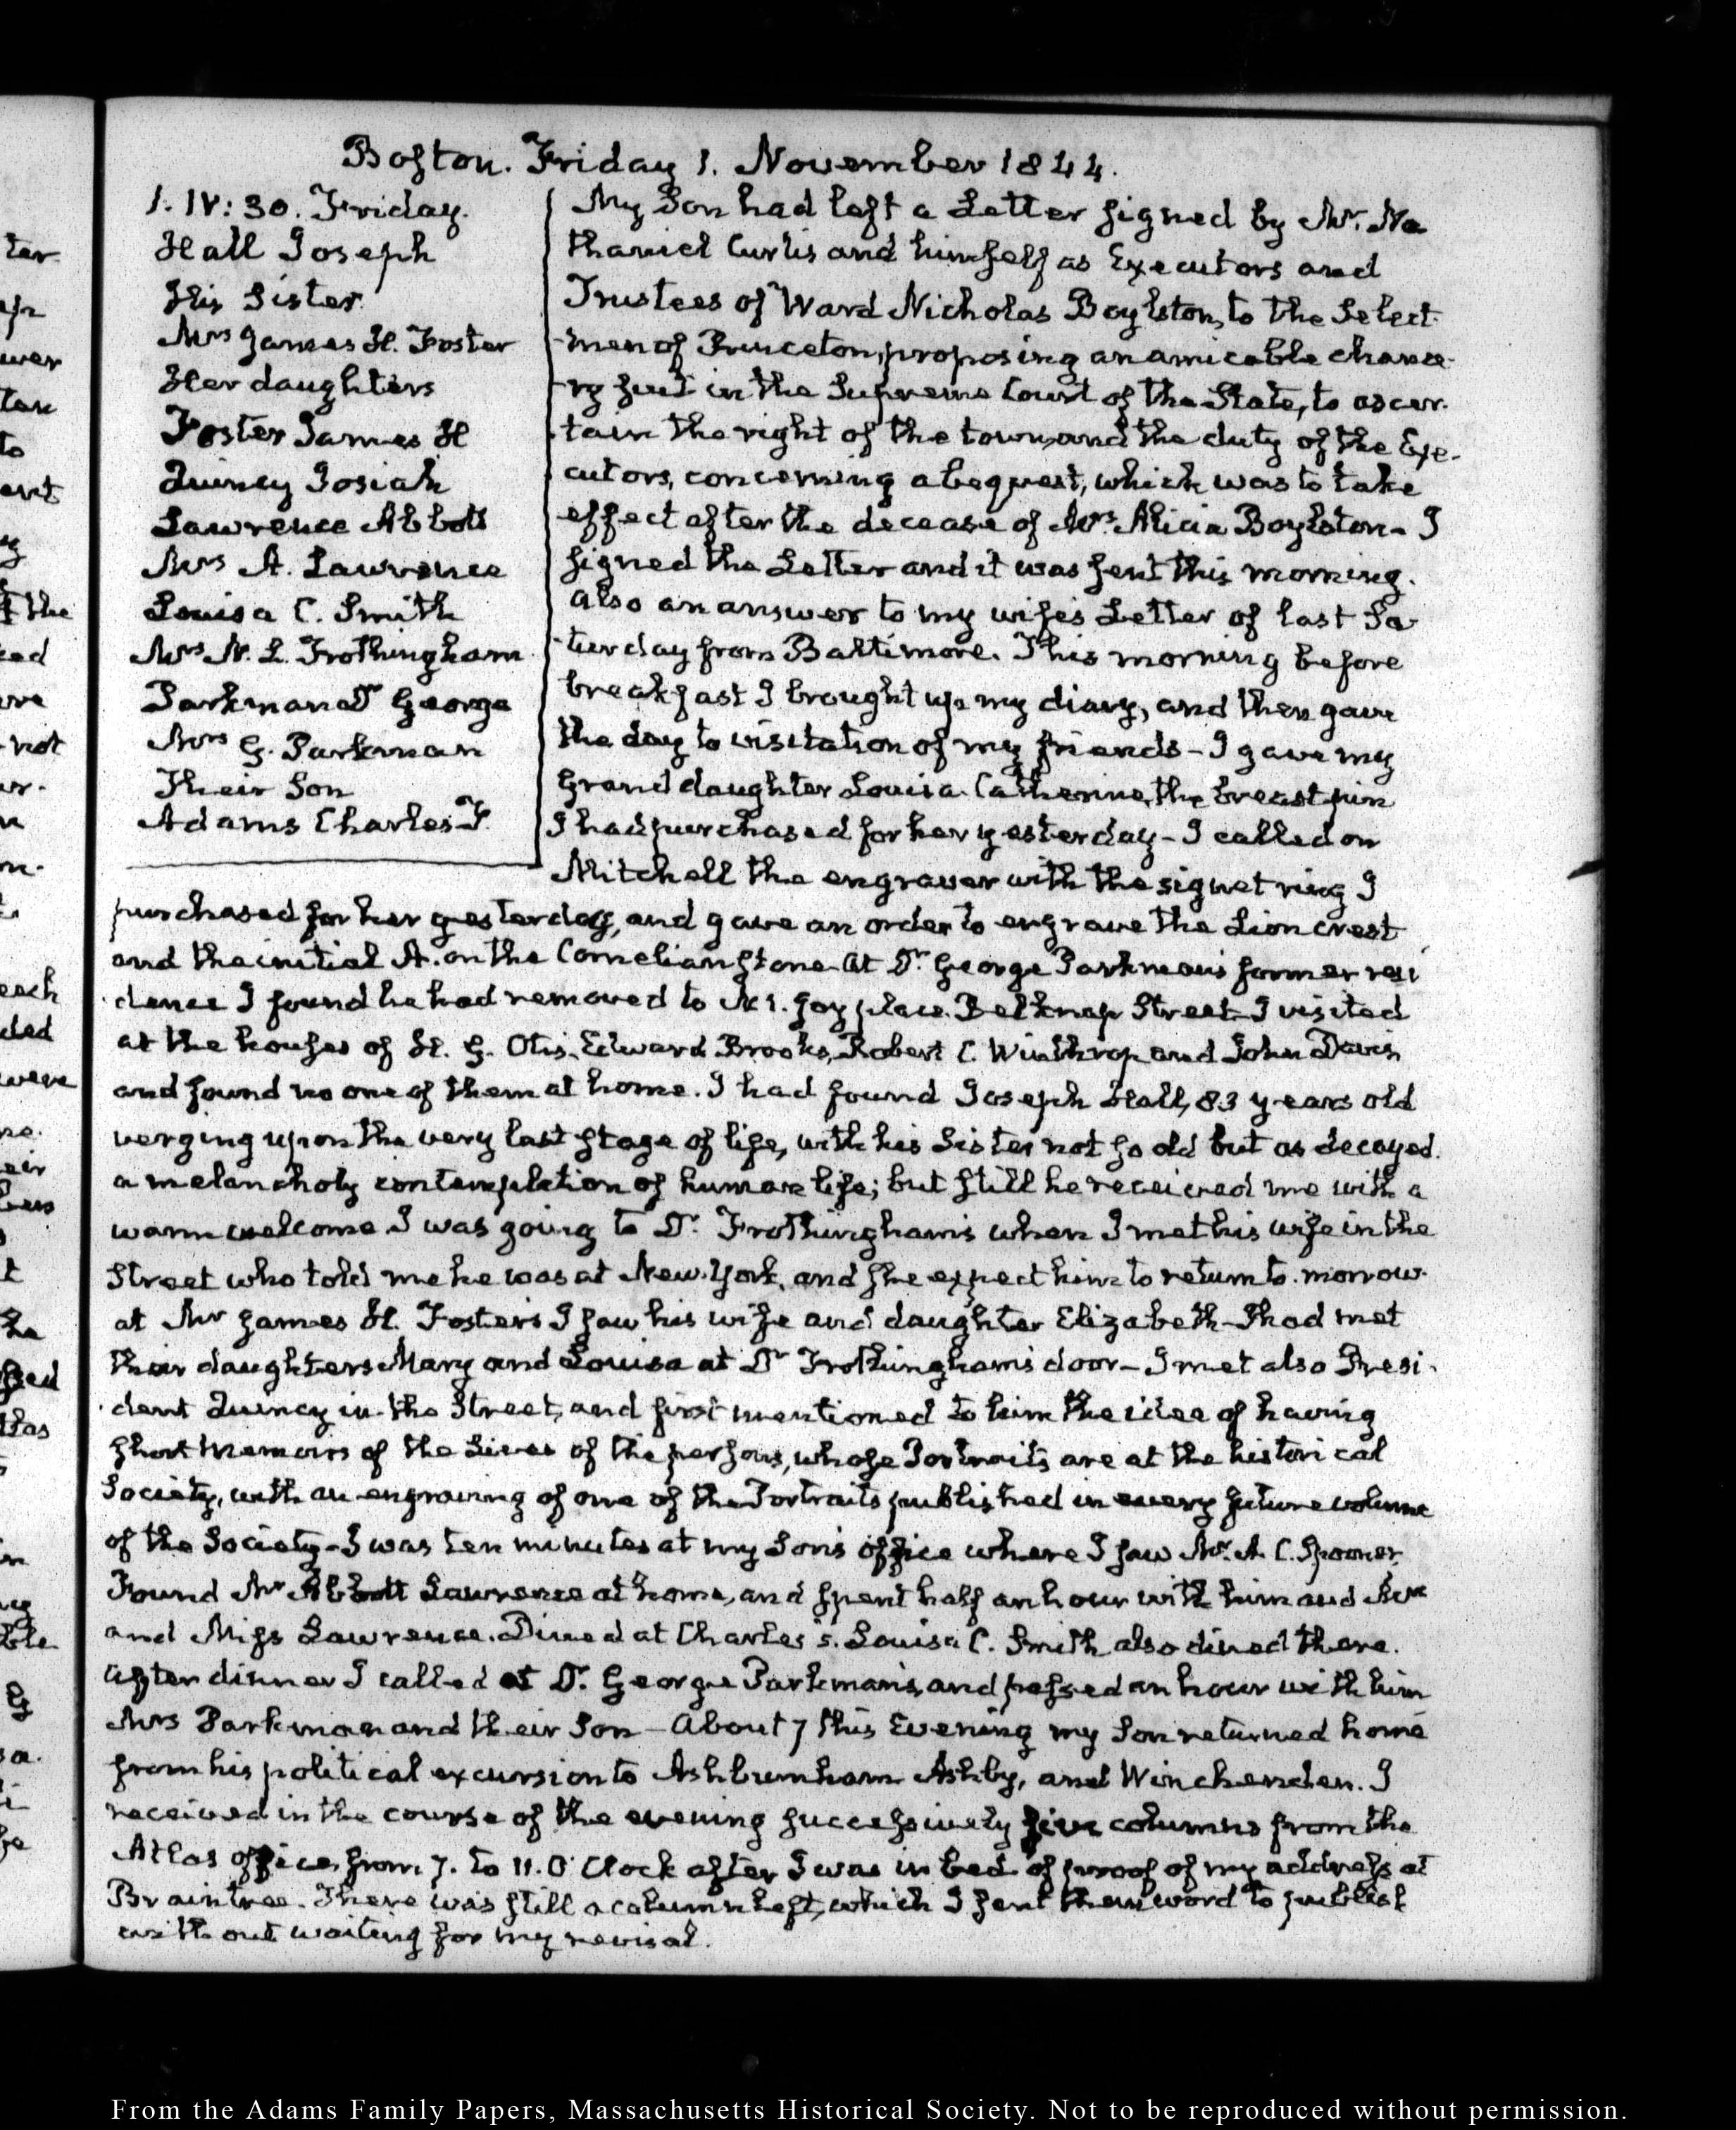 Boston. Friday 1. November 1844.
1. IV: 30. Friday.
Hall Joseph
His Sister.
Mrs James H. Foster
Her daughters
Foster James H
Quincy Josiah
Lawrence Abbott
Mrs A. Lawrence
Louisa C. Smith
Mrs N. L. Frothingham
Parkman Dr George
Mrs G. Parkman
Their Son
Adams Charles F.
My Son had left a Letter signed by Mr. Na
thaniel Curtis and himself as Executors and
Trustees of Ward Nicholas Boylston, to the Select-
-men of Princeton, proposing an amicable chance-
-ry suit in the Supreme Court of the State, to ascer-
-tain the right of the town, and the duty of the Exe-
cutors, concerning a bequest, which was to take
effect after the decease of Mrs. Alicia Boylston - I
signed the Letter and it was sent this morning.
also an answer to my wife's Letter of last Sa-
-turday from Baltimore. This morning before
breakfast I brought up my diary, and then gave
the day to visitation of my friends - I gave my
Grand daughter Louisa Catherine, the breast pin
I had purchased for her yesterday - I called on
Mitchell the engraver with the signet ring I
purchased for her yesterday, and gave an order to engrave the Lion crest
and the initial A. on the Cornelian stone. At Dr. George Parkman's former resi
-dence I found he had removed to N 1. Joy place. Belknap Street. I visited
at the houses of H. G. Otis, Edward Brooks, Robert C. Winthrop and John Davis
and found no one of them at home. I had found Joseph Hall, 83 years old
verging upon the very last stage of life, with his Sister not so old but as decayed.
a melancholy contemplation of human life; but still he received me with a
warm welcome. I was going to Dr. Frothingham's when I met his wife in the
Street who told me he was at New-York, and she expect him to return to-morrow.
at Mr James H. Foster's I saw his wife and daughter Elizabeth - I had met
their daughters Mary and Louisa at Dr Frothingham's door - I met also Presi-
-dent Quincy in the Street, and first mentioned to him the idea of having
short Memoirs of the Lives of the persons, whose Portraits are at the historical
Society, with an engraving of one of the Portraits published in every future volume
of the Society - I was ten minutes at my Son's office where I saw Mr. A. C. Spooner.
Found Mr Abbott Lawrence at home, and spent half an hour with him and Mrs
and Miss Lawrence. Dined at Charles's. Louisa C. Smith also dined there.
after dinner I called at Dr. George Parkman's, and passed an hour with him
Mrs Parkman and their Son - About 7 this Evening my Son returned home
from his political excursion to Ashburnham Ashby, and Winchenden. I
received in the course of the evening successively five columns from the
Atlas office, from 7. to 11. O'Clock after I was in bed of proof of my address at
Braintree. There was still a column left, which I sent them word to publish
without waiting for my revisal.
ter
wer
ten
to
ent
the
ced
not
each
ded
were
t
has
be
From the Adams Family Papers, Massachusetts Historical Society. Not to be reproduced without permission.